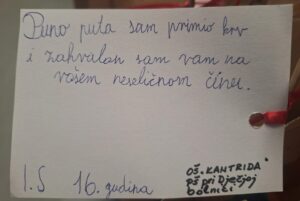 Puno puta sam primio krv
i zahvalan sam vam na
vašem nesebičnom činu.
I.S 16. godina
OŠ "KANTRIDA"
PŠ pri Dječjoj
bolnici